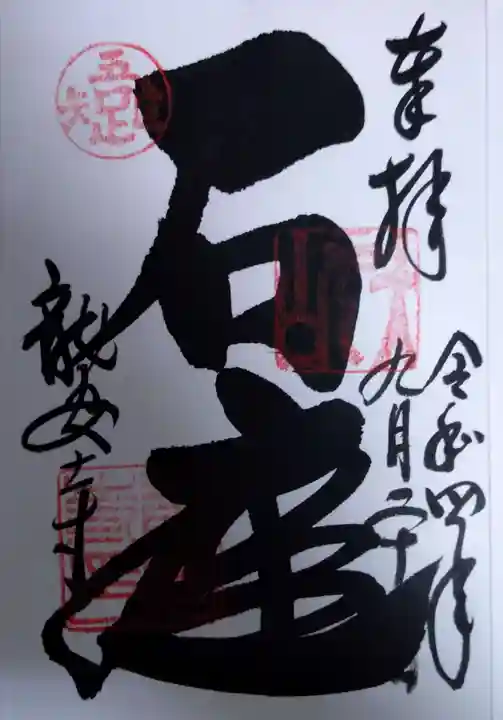 奉拝
令和四年
九月二十
石庭
龍安寺
吾唯足知